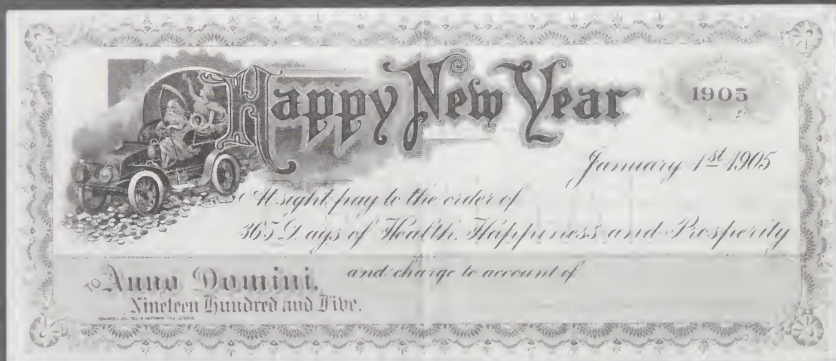 Happy New Year
1905
January 1st 1905
At sight pay to the order of
365 Days of Health, Happiness and Prosperity
and charge to account of
TO Anno Domini,
Nineteen Hundred and Five.